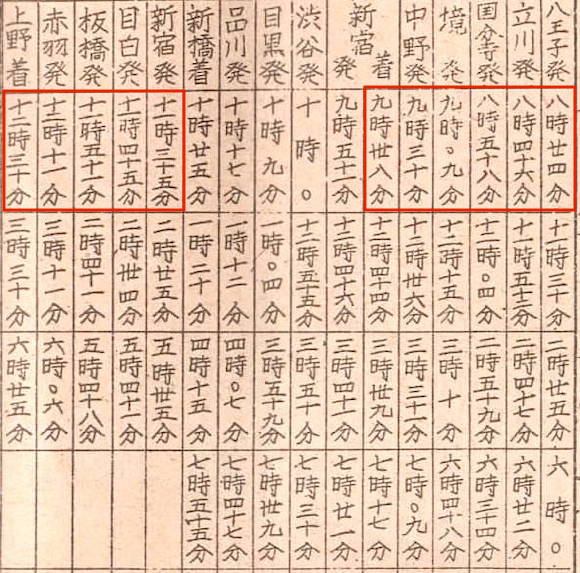 八王子発
八時廿四分
十一時三十分
二時廿五分
六時〇
立川発
八時四十六分
十一時五十三分
二時四十七分
六時廿二分
国分寺発
八時五十八分
十二時〇四分
二時五十九分
六時三十四分
境発
九時〇九分
十二時十五分
三時十分
六時四十八分
中野発
九時三十分
十二時卅六分
三時三十一分
七時〇九分
新宿
着
九時卅八分
十二時四十四分
三時卅九分
七時十七分
発
九時五十一分
十二時四十六分
三時四十一分
七時廿一分
渋谷発
十時〇
十二時五十五分
三時五十分
七時三十分
目黒発
十時九分
一時〇四分
三時五十九分
七時卅九分
品川発
十時十七分
一時十二分
四時〇七分
七時四十七分
新橋着
十時廿五分
一時二十分
四時十五分
七時五十五分
新宿発
十一時三十五分
二時廿五分
五時卅五分
目白発
十一時四十五分
二時卅四分
五時四十一分
板橋発
十一時五十一分
二時四十一分
五時四十八分
赤羽発
十二時十一分
三時十一分
六時〇六分
上野着
十二時三十分
三時三十分
六時廿五分